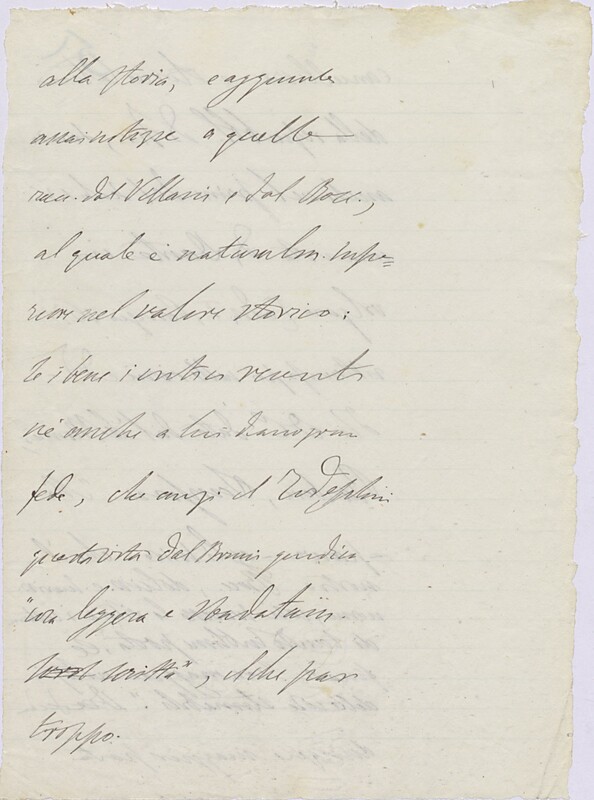 alla storia, e aggiunte
assai notizie a quelle
racc. dal Villani e dal Bocc.,
al quale è naturalm. supe=
riore nel valore storico:
se i bene i critici recenti
nè anche a lui dan gran
fede, che anzi il Todeschini
questa vita dal Bruni giudica
"cosa leggera e sbadatam.
scritta", il che par
troppo.